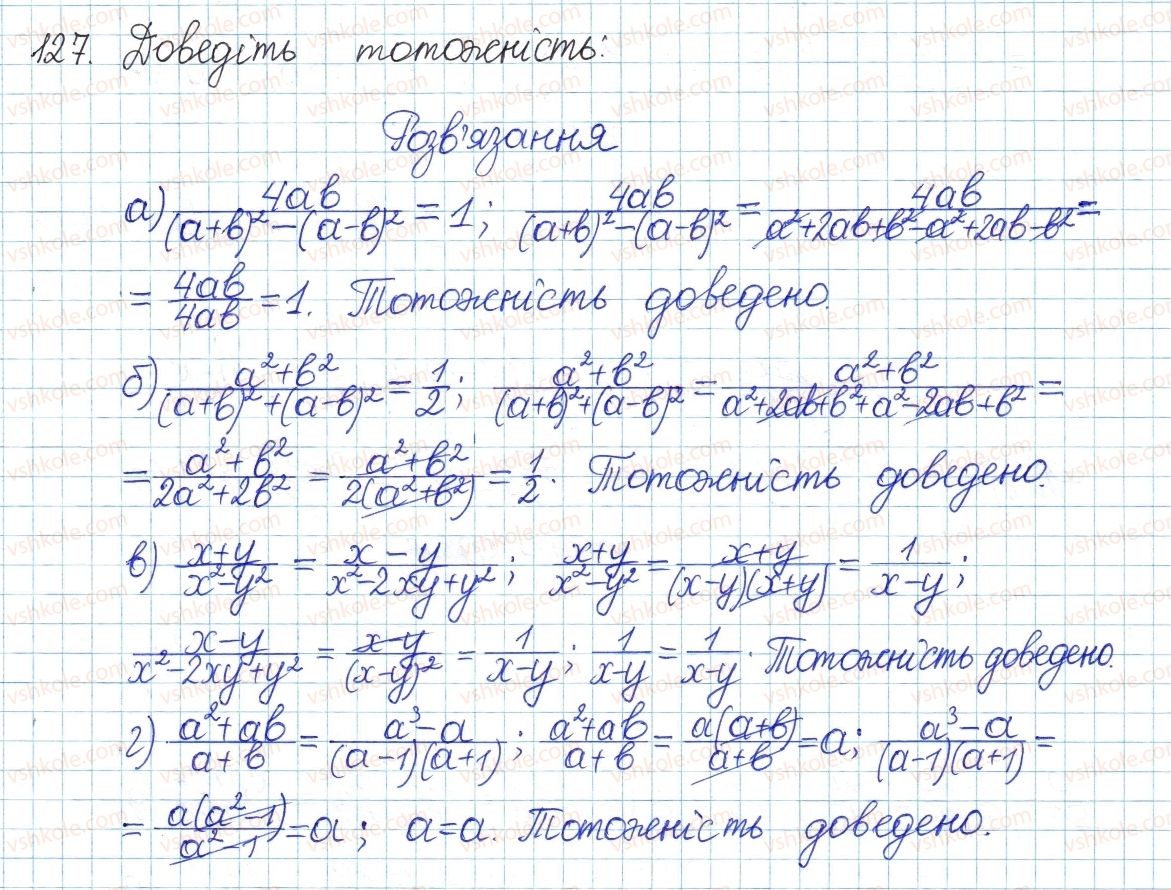 127. Доведіть тотожність:
Розв'язання
а) 4ab/((a+b)²-(a-b)²) = 1; 4ab/((a+b)²-(a-b)²) = 4ab/(a²+2ab+b²-a²+2ab-b²) =
= 4ab/4ab = 1. Тотожність доведено.
б) (a²+b²)/((a+b)²+(a-b)²) = 1/2; (a²+b²)/((a+b)²+(a-b)²) = (a²+b²)/(a²+2ab+b²+a²-2ab+b²) =
= (a²+b²)/(2a²+2b²) = (a²+b²)/(2(a²+b²)) = 1/2. Тотожність доведено.
в) (x+y)/(x²-y²) = (x-y)/(x²-2xy+y²); (x+y)/(x²-y²) = (x+y)/((x-y)(x+y)) = 1/(x-y);
(x-y)/(x²-2xy+y²) = (x-y)/(x-y)² = 1/(x-y); 1/(x-y) = 1/(x-y). Тотожність доведено.
г) (a²+ab)/(a+b) = (a³-a)/((a-1)(a+1)); (a²+ab)/(a+b) = a(a+b)/(a+b) = a; (a³-a)/((a-1)(a+1)) =
= a(a²-1)/(a²-1) = a; a=a. Тотожність доведено.
vshkole.com